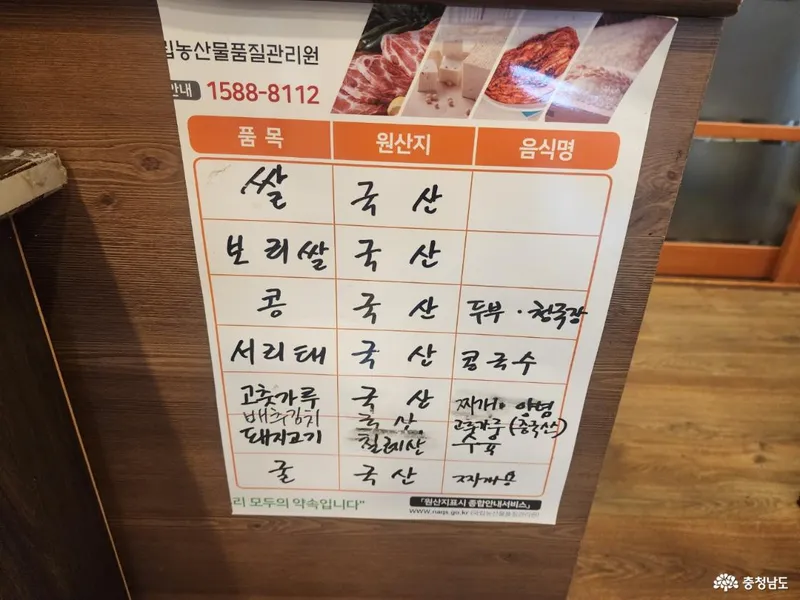 립농산물품질관리원
안내 1588-8112
품 목 원산지 음식명
쌀 국 산
보 리 쌀 국 산
콩 국 산 두부 · 청국장
서 리 태 국 산 콩 국 수
고춧가루 국 산 찌개용 양념
배추김치 국 산 고춧가루 (중국산)
돼지고기 칠레산 수육
굴 국 산 찌개용
리 모두의 약속입니다"
「원산지표시 종합안내서비스」
www.naqs.go.kr (국립농산물품질관리원)
충청남도